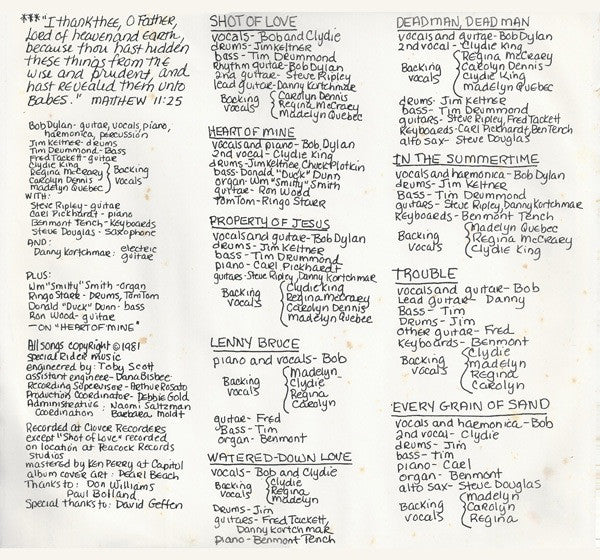 *** "I thank thee, O Father,
Lord of heaven and Earth,
because thou hast hidden
these things from the
wise and prudent, and
hast revealed them unto
Babes." MATTHEW 11:25
Bob Dylan - guitar, vocals, piano,
harmonica, percussion
Jim Keltner - drums
Tim Drummond - Bass
Fred Tackett - guitar
Clydie King
Regina McCrary
Carolyn Dennis
Madelyn Quebec
Backing
vocals
WITH:
Steve Ripley - guitar
Carl Pickhardt - piano
Benmont Tench - Keyboards
Steve Douglas - Saxophone
AND:
Danny Kortchmar: electric
guitar
PLUS:
Wm "Smitty" Smith - organ
Ringo Starr - Drums, TomTom
Donald "Duck" Dunn - bass
Ron Wood - guitar
— ON "HEART OF MINE"
All songs copyright © 1981
Special Rider music
engineered by: Toby Scott
assistant engineer - Dana Bisbee
Recording Supervisor - Arthur Rosato
Production Coordinator - Debbie Gold
Administrative: Naomi Saltzman
Coordination Barbara Moldt
Recorded at Clover Recorders
except "Shot of Love" recorded
on location at Peacock Records
Studios
mastered by Ken Perry at Capitol
album cover art: Pearl Beach
Thanks to: Don Williams
Paul Bolland
Special thanks to: David Geffen
SHOT OF LOVE
vocals - Bob and Clydie
drums - Jim Keltner
bass - Tim Drummond
Rhythm guitar - Bob Dylan
2nd guitar - Steve Ripley
lead guitar - Danny Kortchmar
Backing
vocals
Carolyn Dennis
Regina McCrary
madelyn Quebec
HEART OF MINE
vocals and piano - Bob Dylan
2nd vocal - Clydie King
drums - Jim Keltner Chuck Plotkin
bass - Donald "Duck" Dunn
organ - Wm "Smitty" Smith
guitar - Ron Wood
Tom Tom - Ringo Starr
PROPERTY OF JESUS
vocals and guitar - Bob Dylan
drums - Jim Keltner
bass - Tim Drummond
piano - Carl Pickhardt
guitars - Steve Ripley, Danny Kortchmar
Backing
vocals
Clydie King
Regina McCrary
Carolyn Dennis
madelyn Quebec
LENNY BRUCE
piano and vocals - Bob
Backing
vocals
Madelyn
Clydie
Regina
Carolyn
guitar - Fred
Bass - Tim
organ - Benmont
WATERED-DOWN LOVE
vocals - Bob and Clydie
Backing
vocals
Clydie
Regina
madelyn
Drums - Jim
guitars - Fred Tackett,
Danny Kortchmar
piano - Benmont Tench
DEAD MAN, DEAD MAN
vocals and guitar - Bob Dylan
2nd vocal - Clydie King
Backing
vocals
Regina McCrary
Carolyn Dennis
Clydie King
madelyn Quebec
drums - Jim Keltner
bass - Tim Drummond
guitars - Steve Ripley, Fred Tackett
Keyboards - Carl Pickhardt, Ben Tench
alto sax - Steve Douglas
IN THE SUMMERTIME
vocals and harmonica - Bob Dylan
drums - Jim Keltner
Bass - Tim Drummond
guitars - Steve Ripley, Danny Kortchmar
Keyboards - Benmont Tench
Backing
vocals
Madelyn Quebec
Regina McCrary
Clydie King
TROUBLE
vocals and guitar - Bob
Lead guitar - Danny
Bass - Tim
Drums - Jim
other guitar - Fred
Keyboards - Benmont
Backing
vocals
Clydie
madelyn
Regina
Carolyn
EVERY GRAIN OF SAND
vocals and harmonica - Bob
2nd vocal - Clydie
drums - Jim
bass - tim
piano - Carl
organ - Benmont
alto sax - Steve Douglas
Backing
vocals
madelyn
Carolyn
Regina